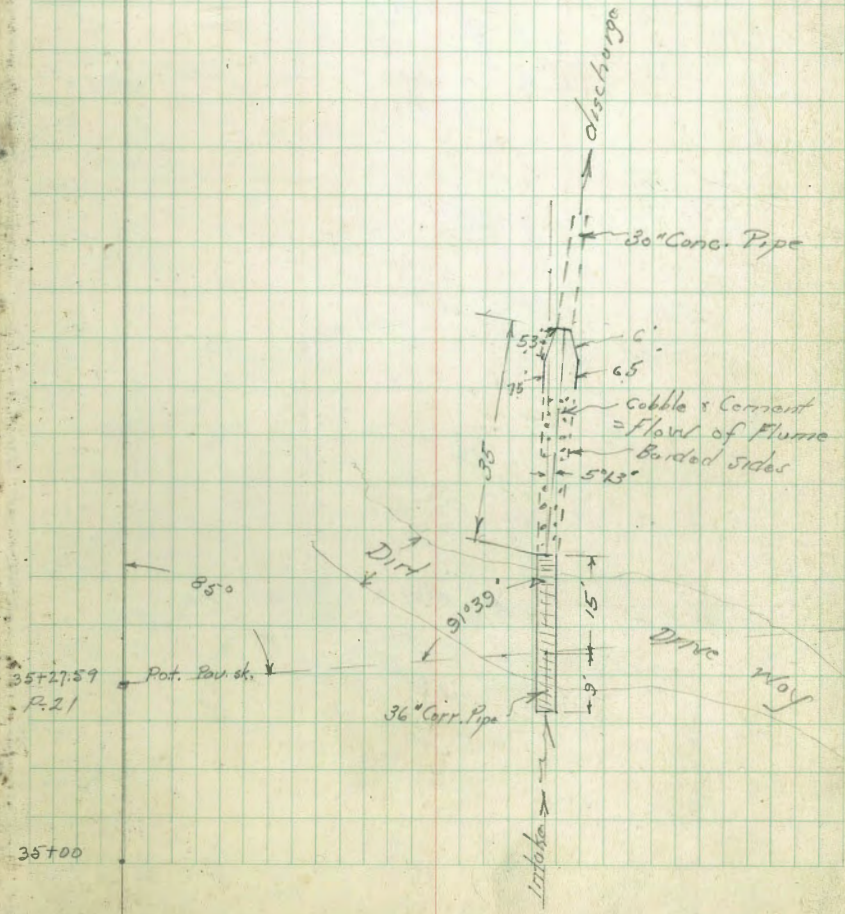 discharge
30" Conc. Pipe
53
6'
75
65
Cobble & Cement
= Floor of Flume
Borded sides
35
5°13"
Dirt
85°
91°39"
15'
Drive Way
9'
35+27.59
P-21
36" Corr. Pipe
Intake
35+00